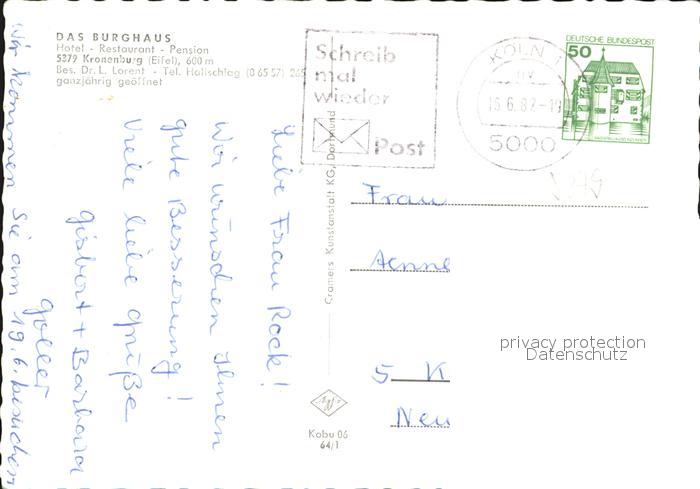 DAS BURGHAUS
Hotel - Restaurant - Pension
5379 Kronenburg (Eifel), 600 m
Bes. Dr. L. Lorent - Tel. Hallschlag (0 65 57) 265
ganzjährig geöffnet
Schreib
mal
wieder
Post
KÖLN 1
5000
DEUTSCHE BUNDESPOST
50
Liebe Frau Rock!
Wir wünschen Ihnen
gute Besserung!
Viele liebe Grüße
Gisbert + Barbara
Goller
Wir kommen Sie am 19.6. besuchen
Cramers Kunstanstalt KG, Dortmund
Frau
Aenne
5 K
Neu
privacy protection
Datenschutz
Kobu 06
64/1